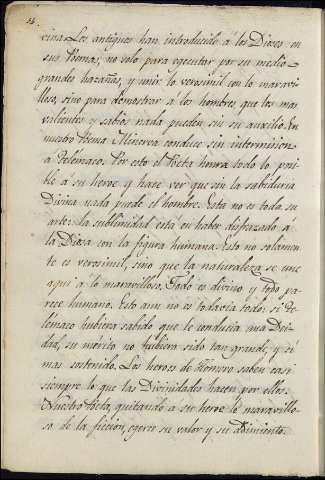 14.
vina. Los antiguos han introducido á los Dioses en
sus Poemas, no solo para egecutar por su medio
grandes hazañas, y unir lo verosimil con lo maravi-
lloso, sino para demostrar á los hombres que los mas
valientes y sabios nada pueden sin su auxilio. En
nuestro Poema Minerva conduce sin intermision
á Telemaco. Por esto el Poeta honra todo lo posi-
ble á su heroe y hace ver que sin la sabiduria
Divina nada puede el hombre. Esta no es toda su
arte: la sublimidad está en haber disfrazado á
la Diosa con la figura humana. Esto no solamen-
te es verosimil, sino que la naturaleza se une
aqui á lo maravilloso. Todo es divino y todo pa-
rece humano. Esto aun no es todavia todo: si Te-
lémaco hubiera sabido que le conducia una Dei-
dad, su merito no hubiera sido tan grande, y sí
mas sostenido. Los heroes de Homero saben casi
siempre lo que las Divinidades hacen por ellos.
Nuestro Poeta, quitando á su heroe lo maravillo-
so de la ficcion, egerce su valor y su